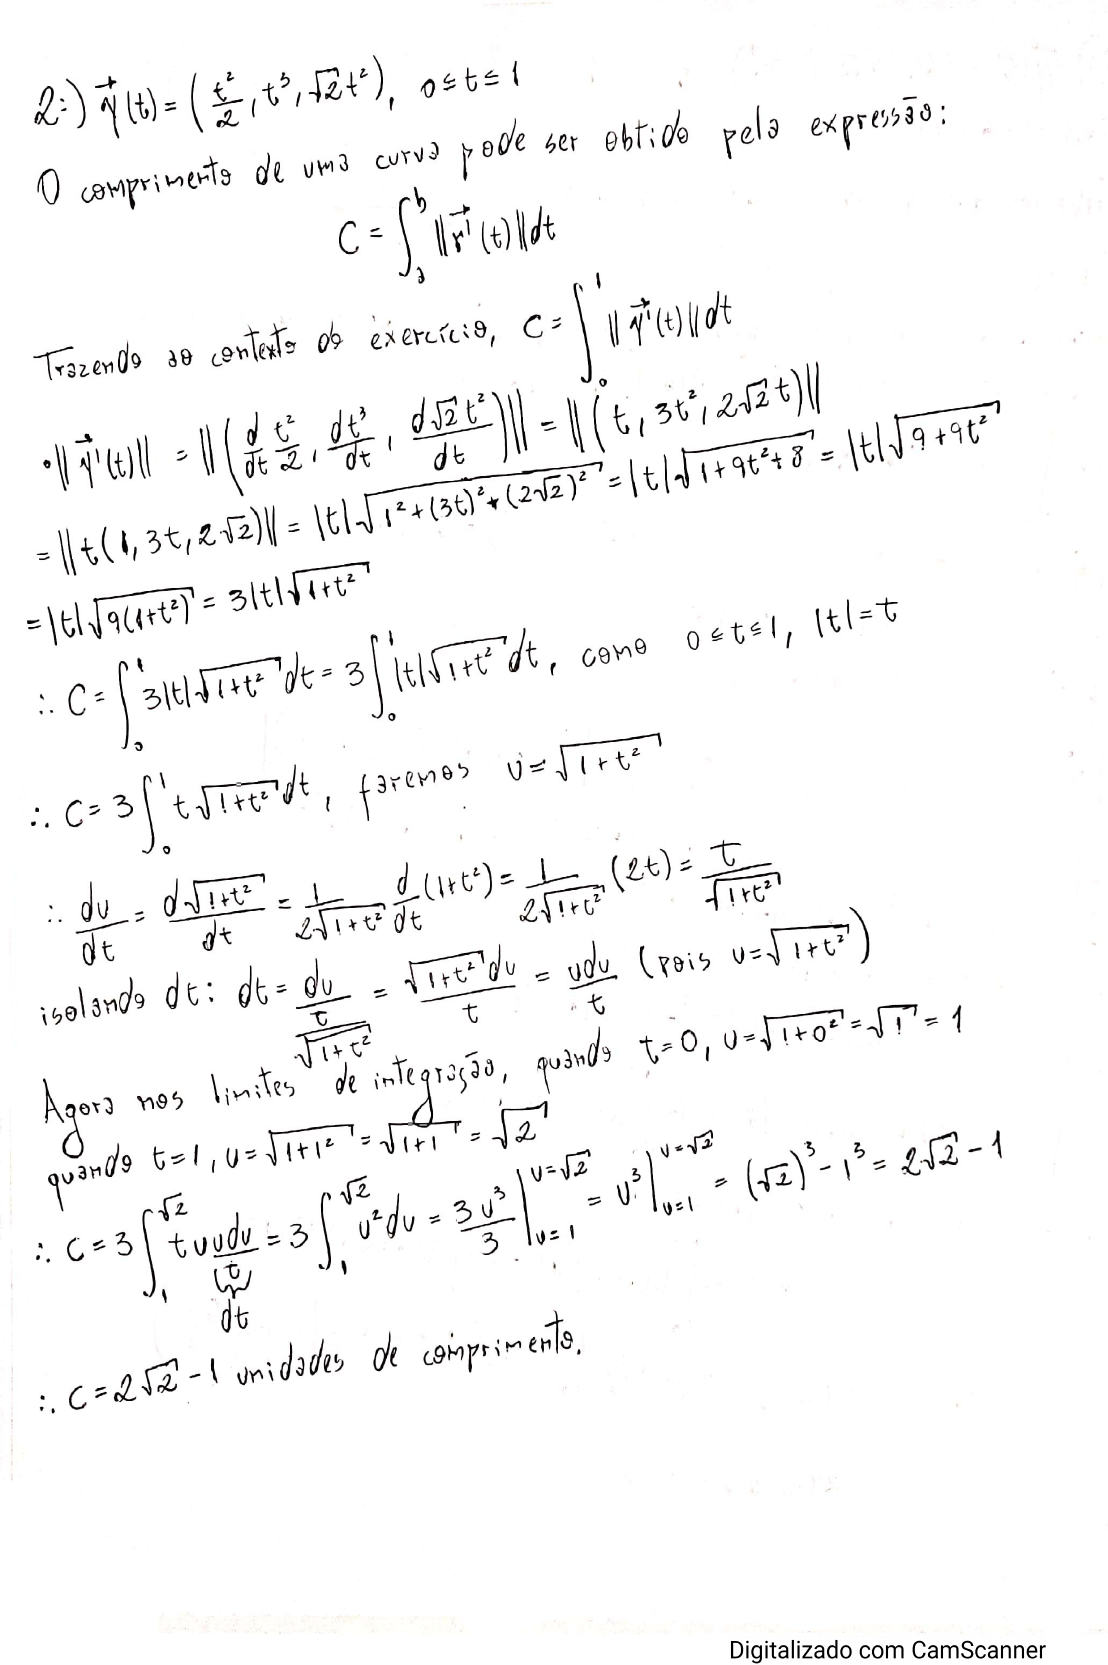 2:) γ⃗(t) = (t²/2, t³, √2 t²), 0 ≤ t ≤ 1
O comprimento de uma curva pode ser obtido pela expressão:
C = ∫ₐᵇ ||r⃗'(t)|| dt
Trazendo ao contexto do exercício, C = ∫₀¹ ||γ⃗'(t)|| dt
• ||γ⃗'(t)|| = ||(d/dt t²/2, dt³/dt, d√2 t²/dt)|| = ||(t, 3t², 2√2 t)||
= ||t(1, 3t, 2√2)|| = |t|√(1² + (3t)² + (2√2)²) = |t|√(1 + 9t² + 8) = |t|√(9 + 9t²)
= |t|√(9(1+t²)) = 3|t|√(1+t²)
∴ C = ∫₀¹ 3|t|√(1+t²) dt = 3∫₀¹ |t|√(1+t²) dt, como 0 ≤ t ≤ 1, |t| = t
∴ C = 3∫₀¹ t√(1+t²) dt, faremos u = √(1+t²)
∴ du/dt = d√(1+t²)/dt = 1/(2√(1+t²)) d/dt (1+t²) = 1/(2√(1+t²)) (2t) = t/√(1+t²)
isolando dt: dt = du/(t/√(1+t²)) = √(1+t²) du/t = udu/t (pois u = √(1+t²))
Agora nos limites de integração, quando t=0, u = √(1+0²) = √1 = 1
quando t=1, u = √(1+1²) = √(1+1) = √2
∴ C = 3∫₁^√2 t u udu/t = 3∫₁^√2 u² du = 3u³/3 |ᵤ₌₁ᵘ⁼√2 = u³ |ᵤ₌₁ᵘ⁼√2 = (√2)³ - 1³ = 2√2 - 1
dt
∴ C = 2√2 - 1 unidades de comprimento.
Digitalizado com CamScanner